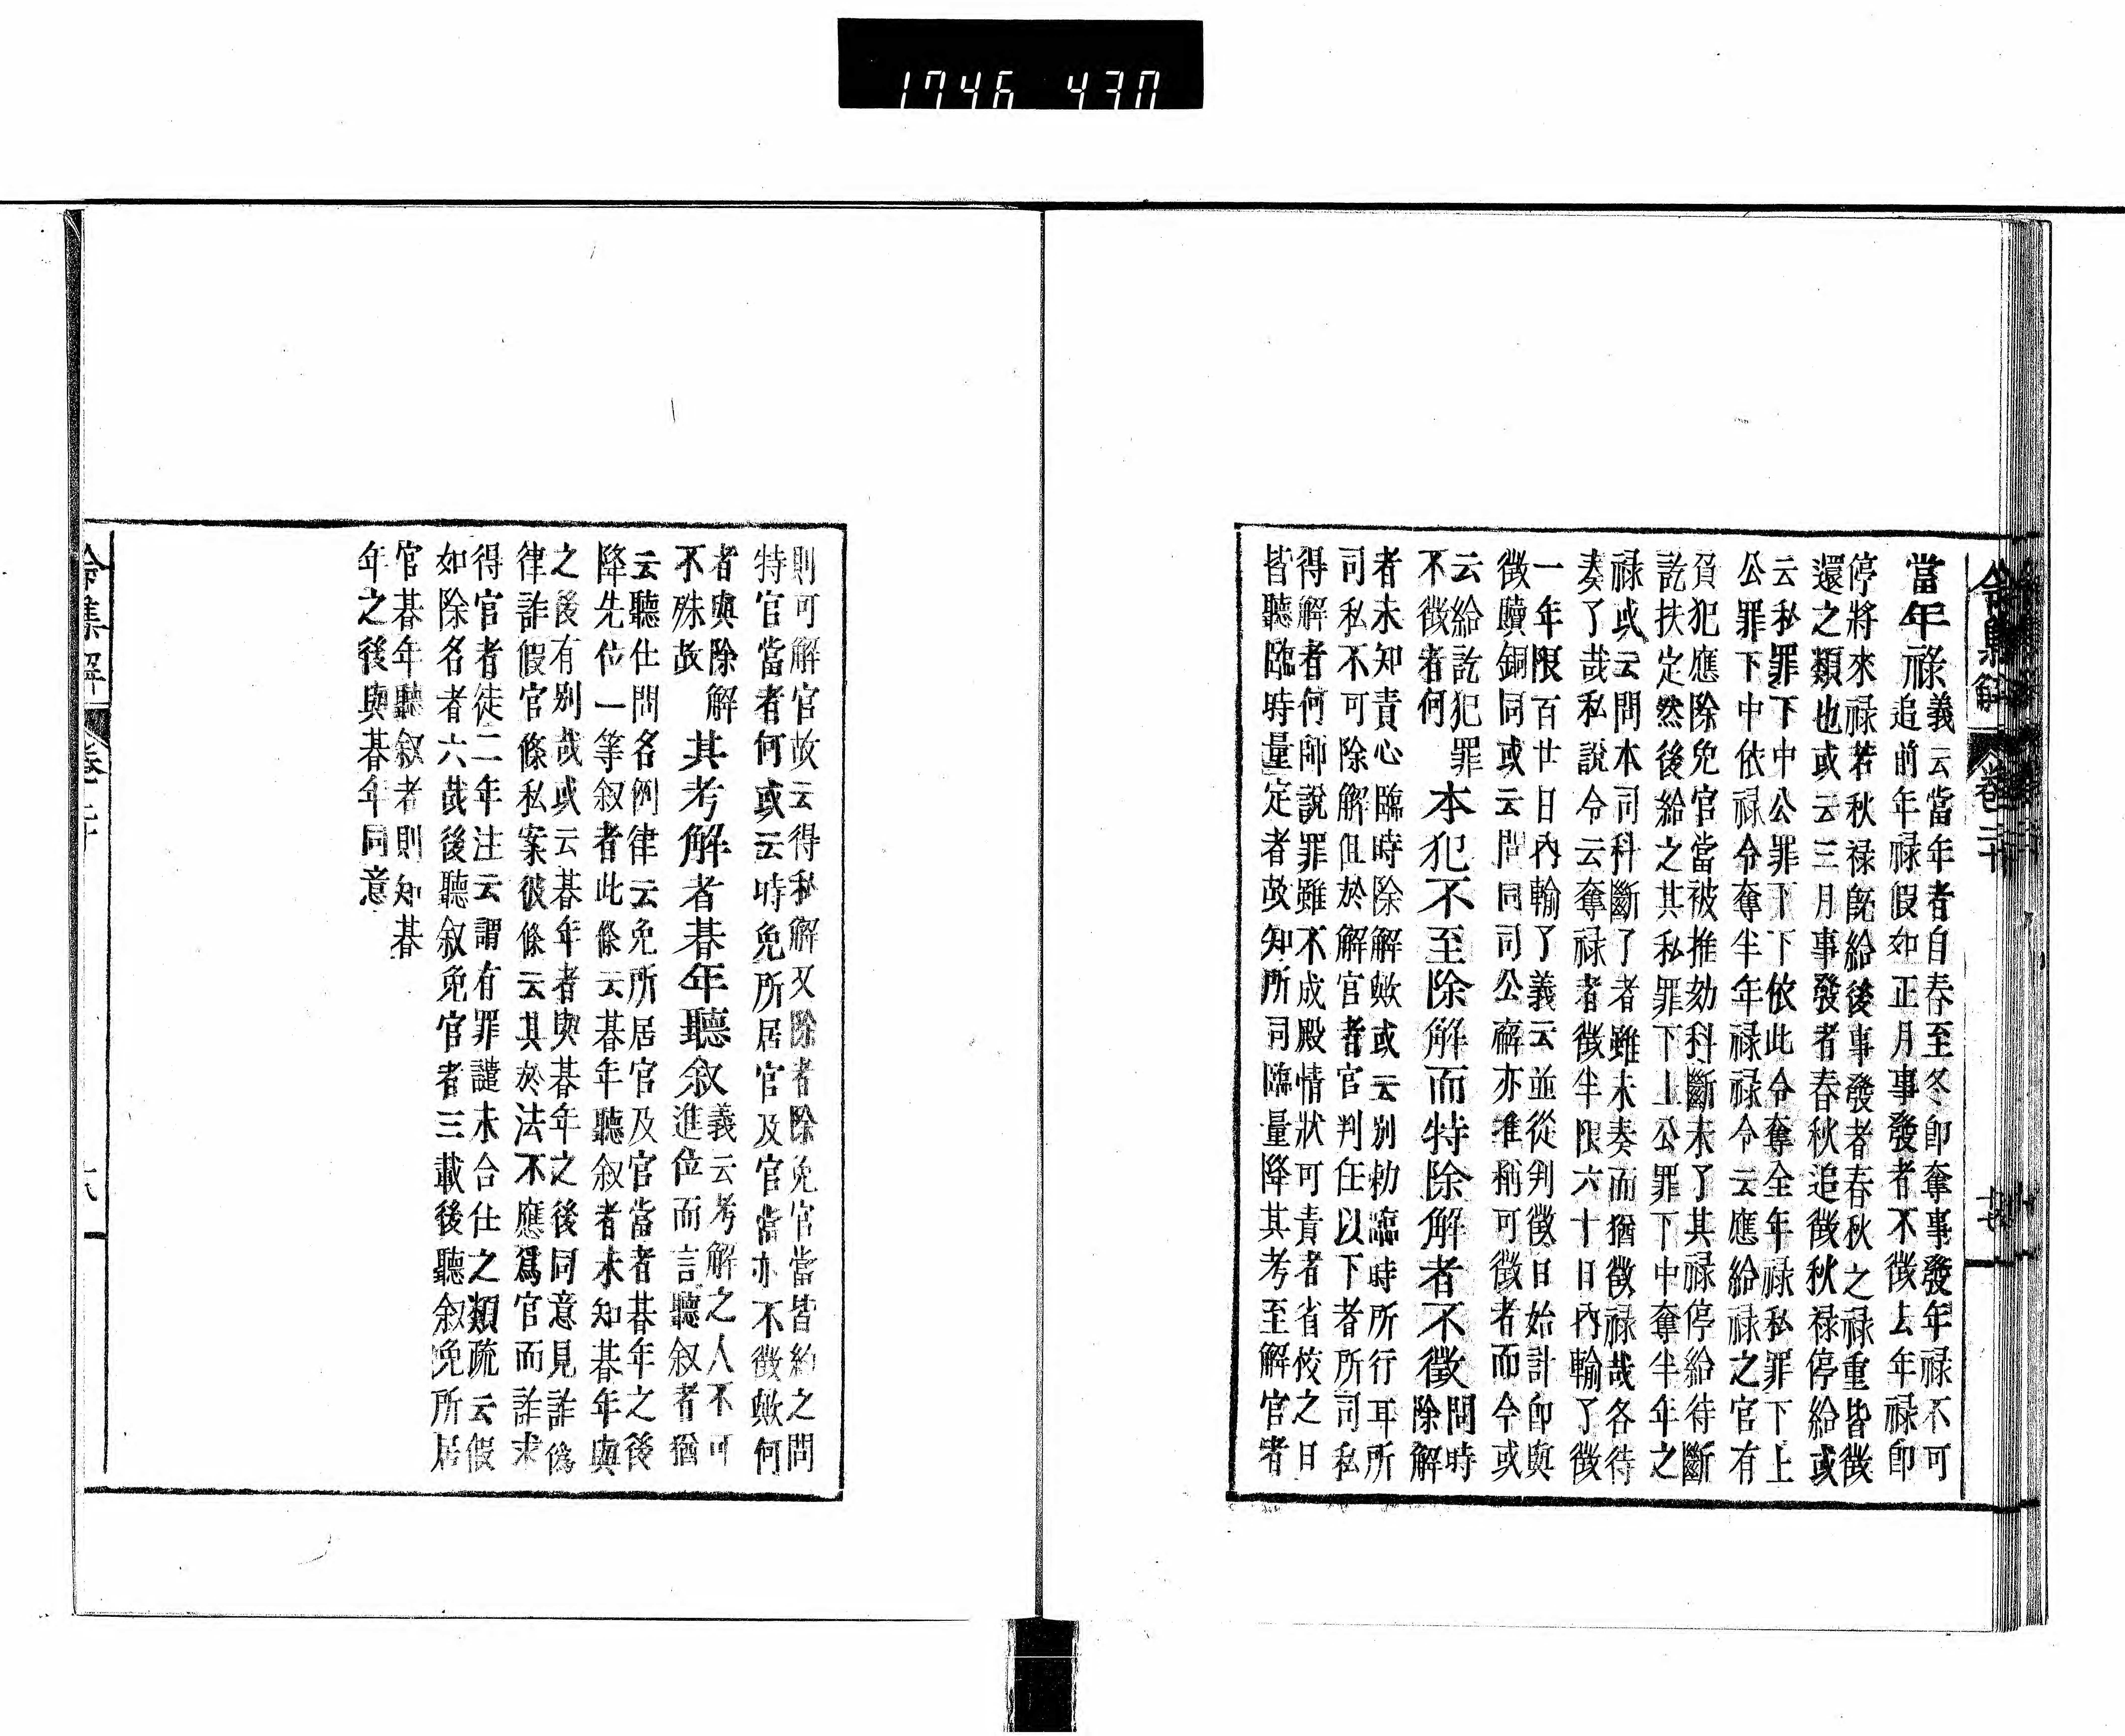 1746 430
令集解 卷二十 十七
當年祿義云當年者自春至冬卽奪事發年祿不可
追前年祿假如正月事發者不徵上年祿卽
停將來祿若秋祿既給後事發者春秋之祿重皆徵
還之類也或云三月事發者春秋追徵秋祿停給或
云私罪下中公罪下下依此令奪全年祿私罪下上
公罪下中依祿令奪半年祿祿令云應給祿之官有
負犯應除免官當被推劾科斷未了其祿停給待斷
訖扶定然後給之其私罪下上公罪下中奪半年之
祿或云問本司科斷了者雖未奏而猶徵祿哉各待
奏了哉私說令云奪祿者徵半限六十日內輸了徵
一年限百廿日內輸了義云並從判徵日始計卽與
徵贖銅同或云問同司公廨亦准稱可徵者而今或
云給訖犯罪
不徵者何
本犯不至除解而特除解者不徵問時
除解
者未知責心臨時除解歟或云別勅臨時所行耳所
司私不可除解但於解官者官判任以下者所司私
得解者何師說罪雖不成殿情狀可責者省校之日
皆聽臨時量定者故知所司臨量降其考至解官者
則可解官故云得私解又除者除免官當皆約之問
特官當者何或云時免所居官及官當亦不徵歟何
者與除解
不殊故
其考解者朞年聽敘義云考解之人不可
進位而言聽叙者猶
云聽仕問名例律云免所居官及官當者朞年之後
降先位一等叙者此條云朞年聽叙者未知朞年與
之後有別哉或云朞年者與朞年之後同意見詐僞
律詐假官條私案彼條云其於法不應爲官而詐求
得官者徒二年注云謂有罪譴未合仕之類疏云假
如除名者六載後聽叙免官者三載後聽叙免所居
官朞年聽叙者則知朞
年之後與朞年同意
令集解 卷二十 十八